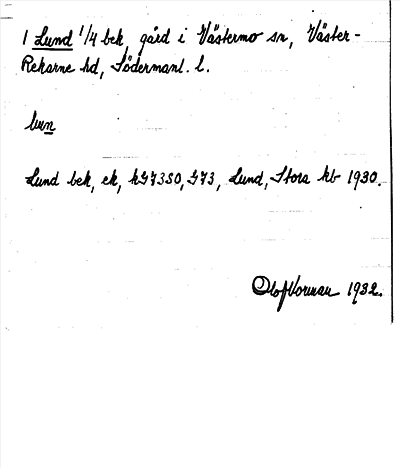 1 Lund 1/4 bek, gård i Västermo sn, Väster-
Rekarne hd, Södermanl. l.
lun
Lund bek, ek, kG73SO, G73, Lund, Stora kb 1930.
Olof Vorman 1932.